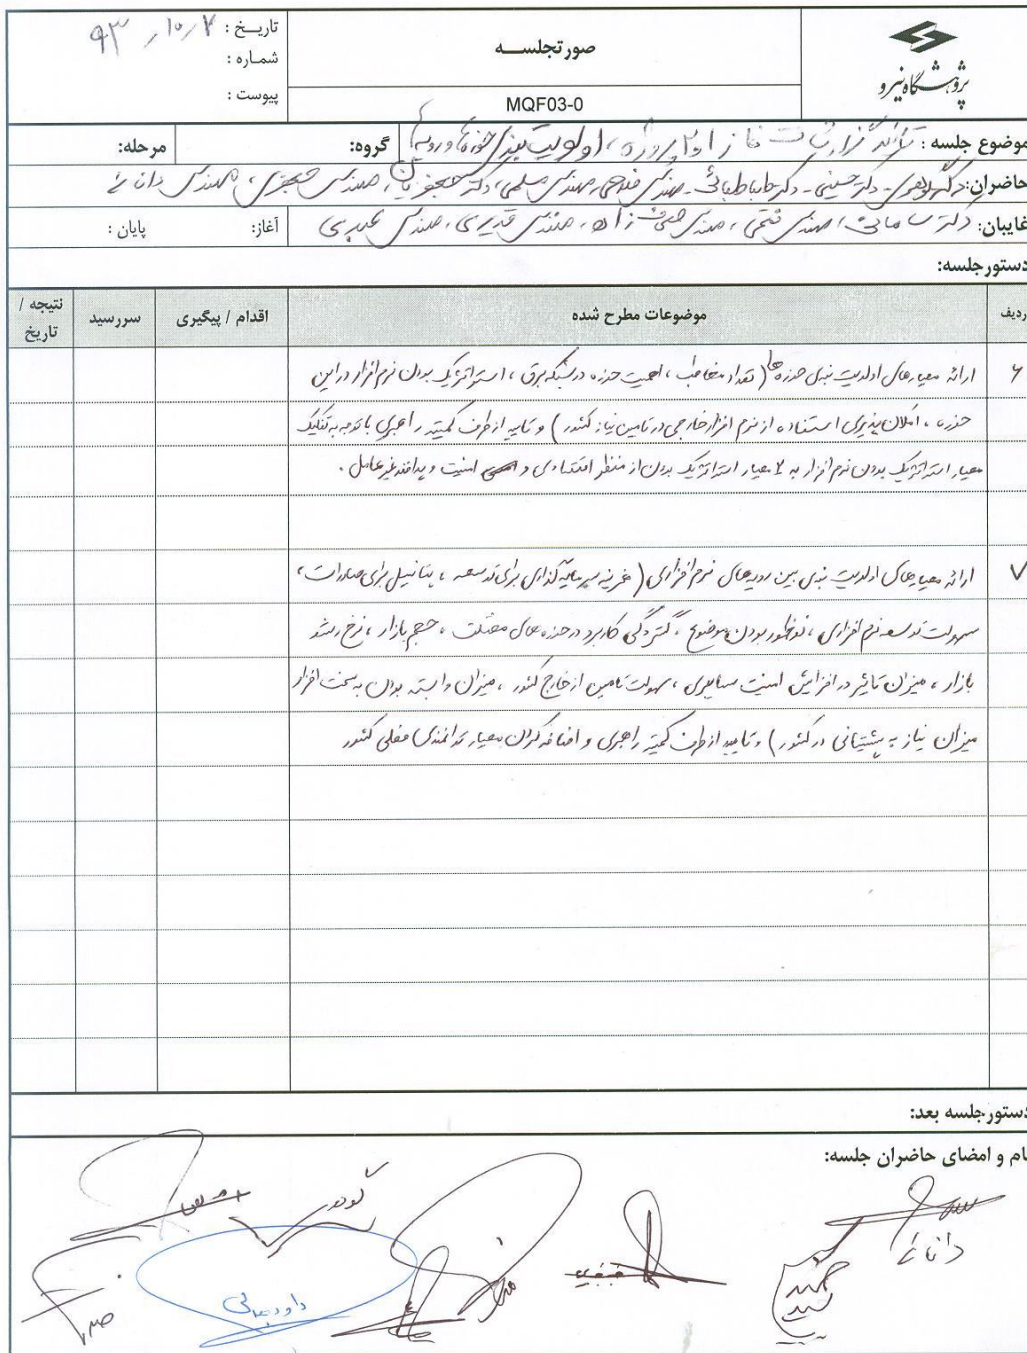 پژوهشگاه نیرو
صورتجلسه
MQF03-0
تاریخ : ۹۳/۱۰/۷
شماره :
پیوست :
موضوع جلسه : گزارشات فاز ۱ و ۲ پروژه، اولویت بندی حوزه ها و رویه ها
گروه:
مرحله:
حاضران: دکتر حسینی - دکتر طباطبائی - مهندس فلاحی، مهندس مسلمی، دکتر جعفریان، مهندس، مهندس دانائی
غایبان: دکتر سامانی، مهندس، مهندس، مهندس قدیری، مهندس
آغاز:
پایان :
دستورجلسه:
ردیف
موضوعات مطرح شده
اقدام / پیگیری
سررسید
نتیجه / تاریخ
۶
ارائه معیارهای اولویت بندی حوزه ها (تعداد مخاطب ، اهمیت حوزه در شبکه برق ، استراتژیک بودن نرم افزار در این
حوزه ، امکان پذیری استفاده از نرم افزار خارجی در تامین نیاز کشور ) و تایید از طرف کمیته راهبری با توجه به تفکیک
معیار استراتژیک بودن نرم افزار به ۲ معیار استراتژیک بودن از منظر اقتصادی و امنیت و پدافند غیرعامل .
۷
ارائه معیارهای اولویت بندی بین رویه های نرم افزاری ( هزینه سرمایه گذاری برای توسعه ، پتانسیل برای صادرات ،
سهولت توسعه نرم افزاری ، نوظهور بودن موضوع ، گستردگی کاربرد در حوزه های مختلف ، حجم بازار ، نرخ رشد
بازار ، میزان تاثیر در افزایش امنیت سایبری ، سهولت تامین از خارج کشور ، میزان وابسته بودن به سخت افزار
میزان نیاز به پشتیبانی در کشور ) و تایید از طرف کمیته راهبری و اضافه کردن معیار توانمندی فعلی کشور
دستورجلسه بعد:
نام و امضای حاضران جلسه:
دانائی